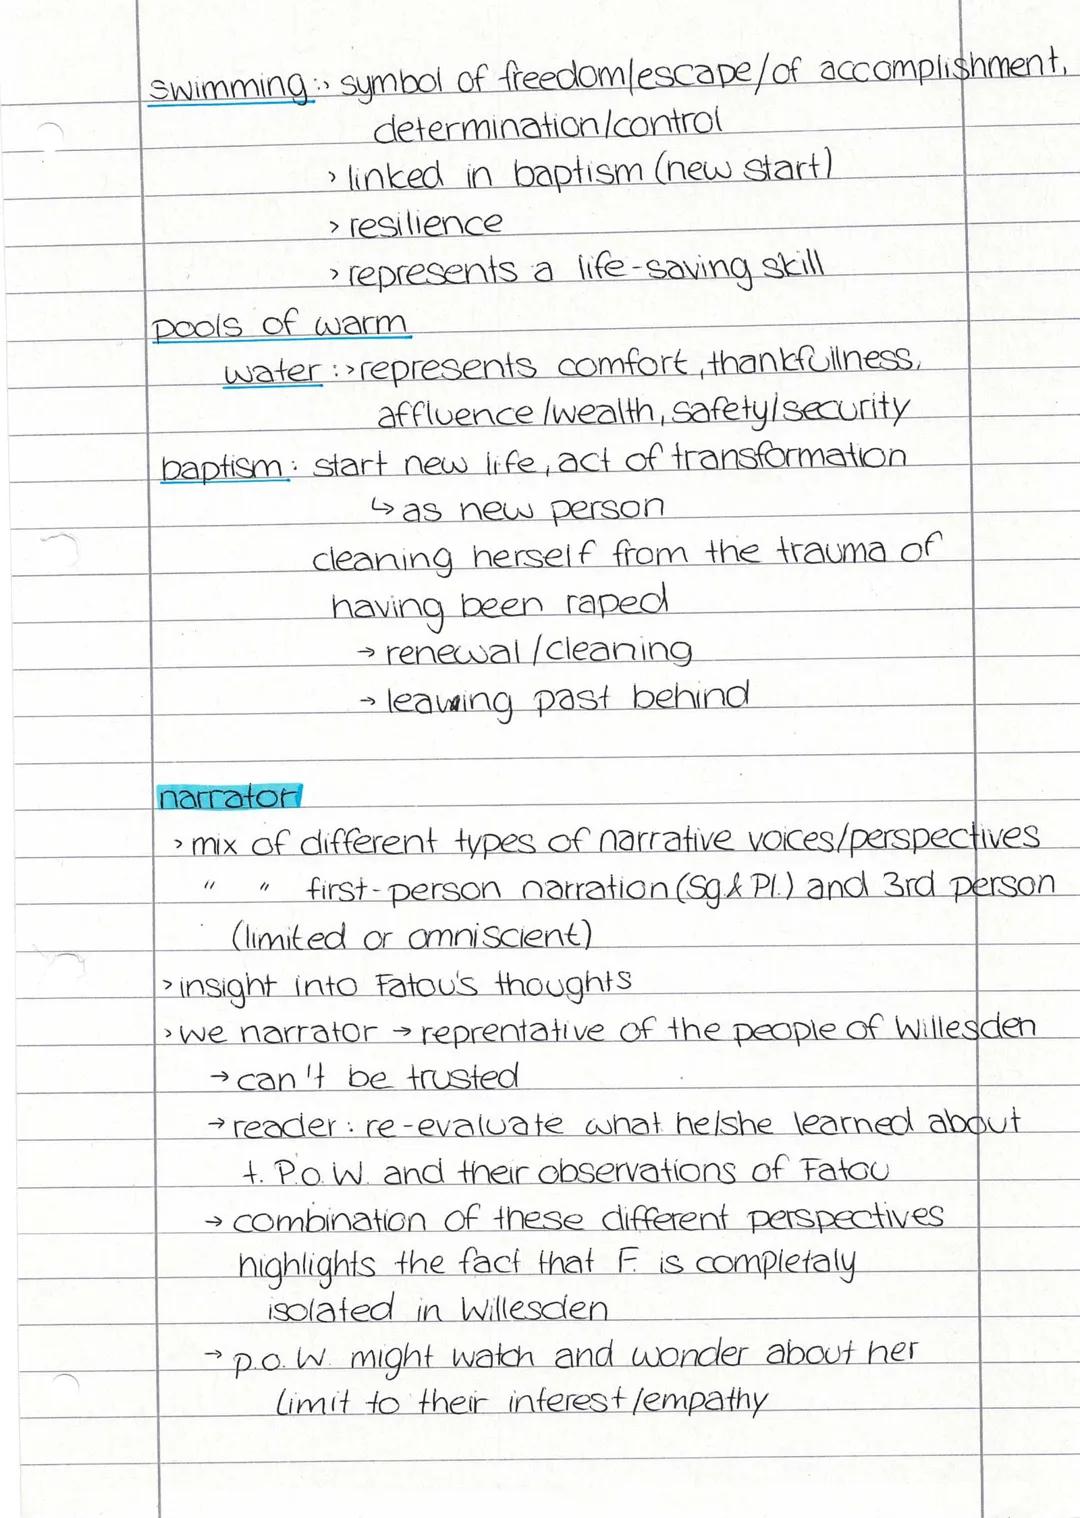 swimming:> symbol of freedom/escape/of accomplishment,
determination/control
> linked in baptism (new start)
> resilience
> represents a life-saving skill
pools of warm
water :> represents comfort, thankfullness,
affluence/wealth, safety/security
baptism: start new life, act of transformation
↳ as new person
cleaning herself from the trauma of
having been raped
→ renewal/cleaning
→ leaving past behind
narrator
> mix of different types of narrative voices/perspectives
" " first-person narration (Sg & Pl.) and 3rd person
(limited or omniscient)
> insight into Fatou's thoughts
> we narrator → reprentative of the people of Willesden
→ can't be trusted
→ reader: re-evaluate what he/she learned about
t. P.o.W. and their observations of Fatou
→ combination of these different perspectives
highlights the fact that F. is completaly
isolated in Willesden
→ p.o.W. might watch and wonder about her
limit to their interest/empathy